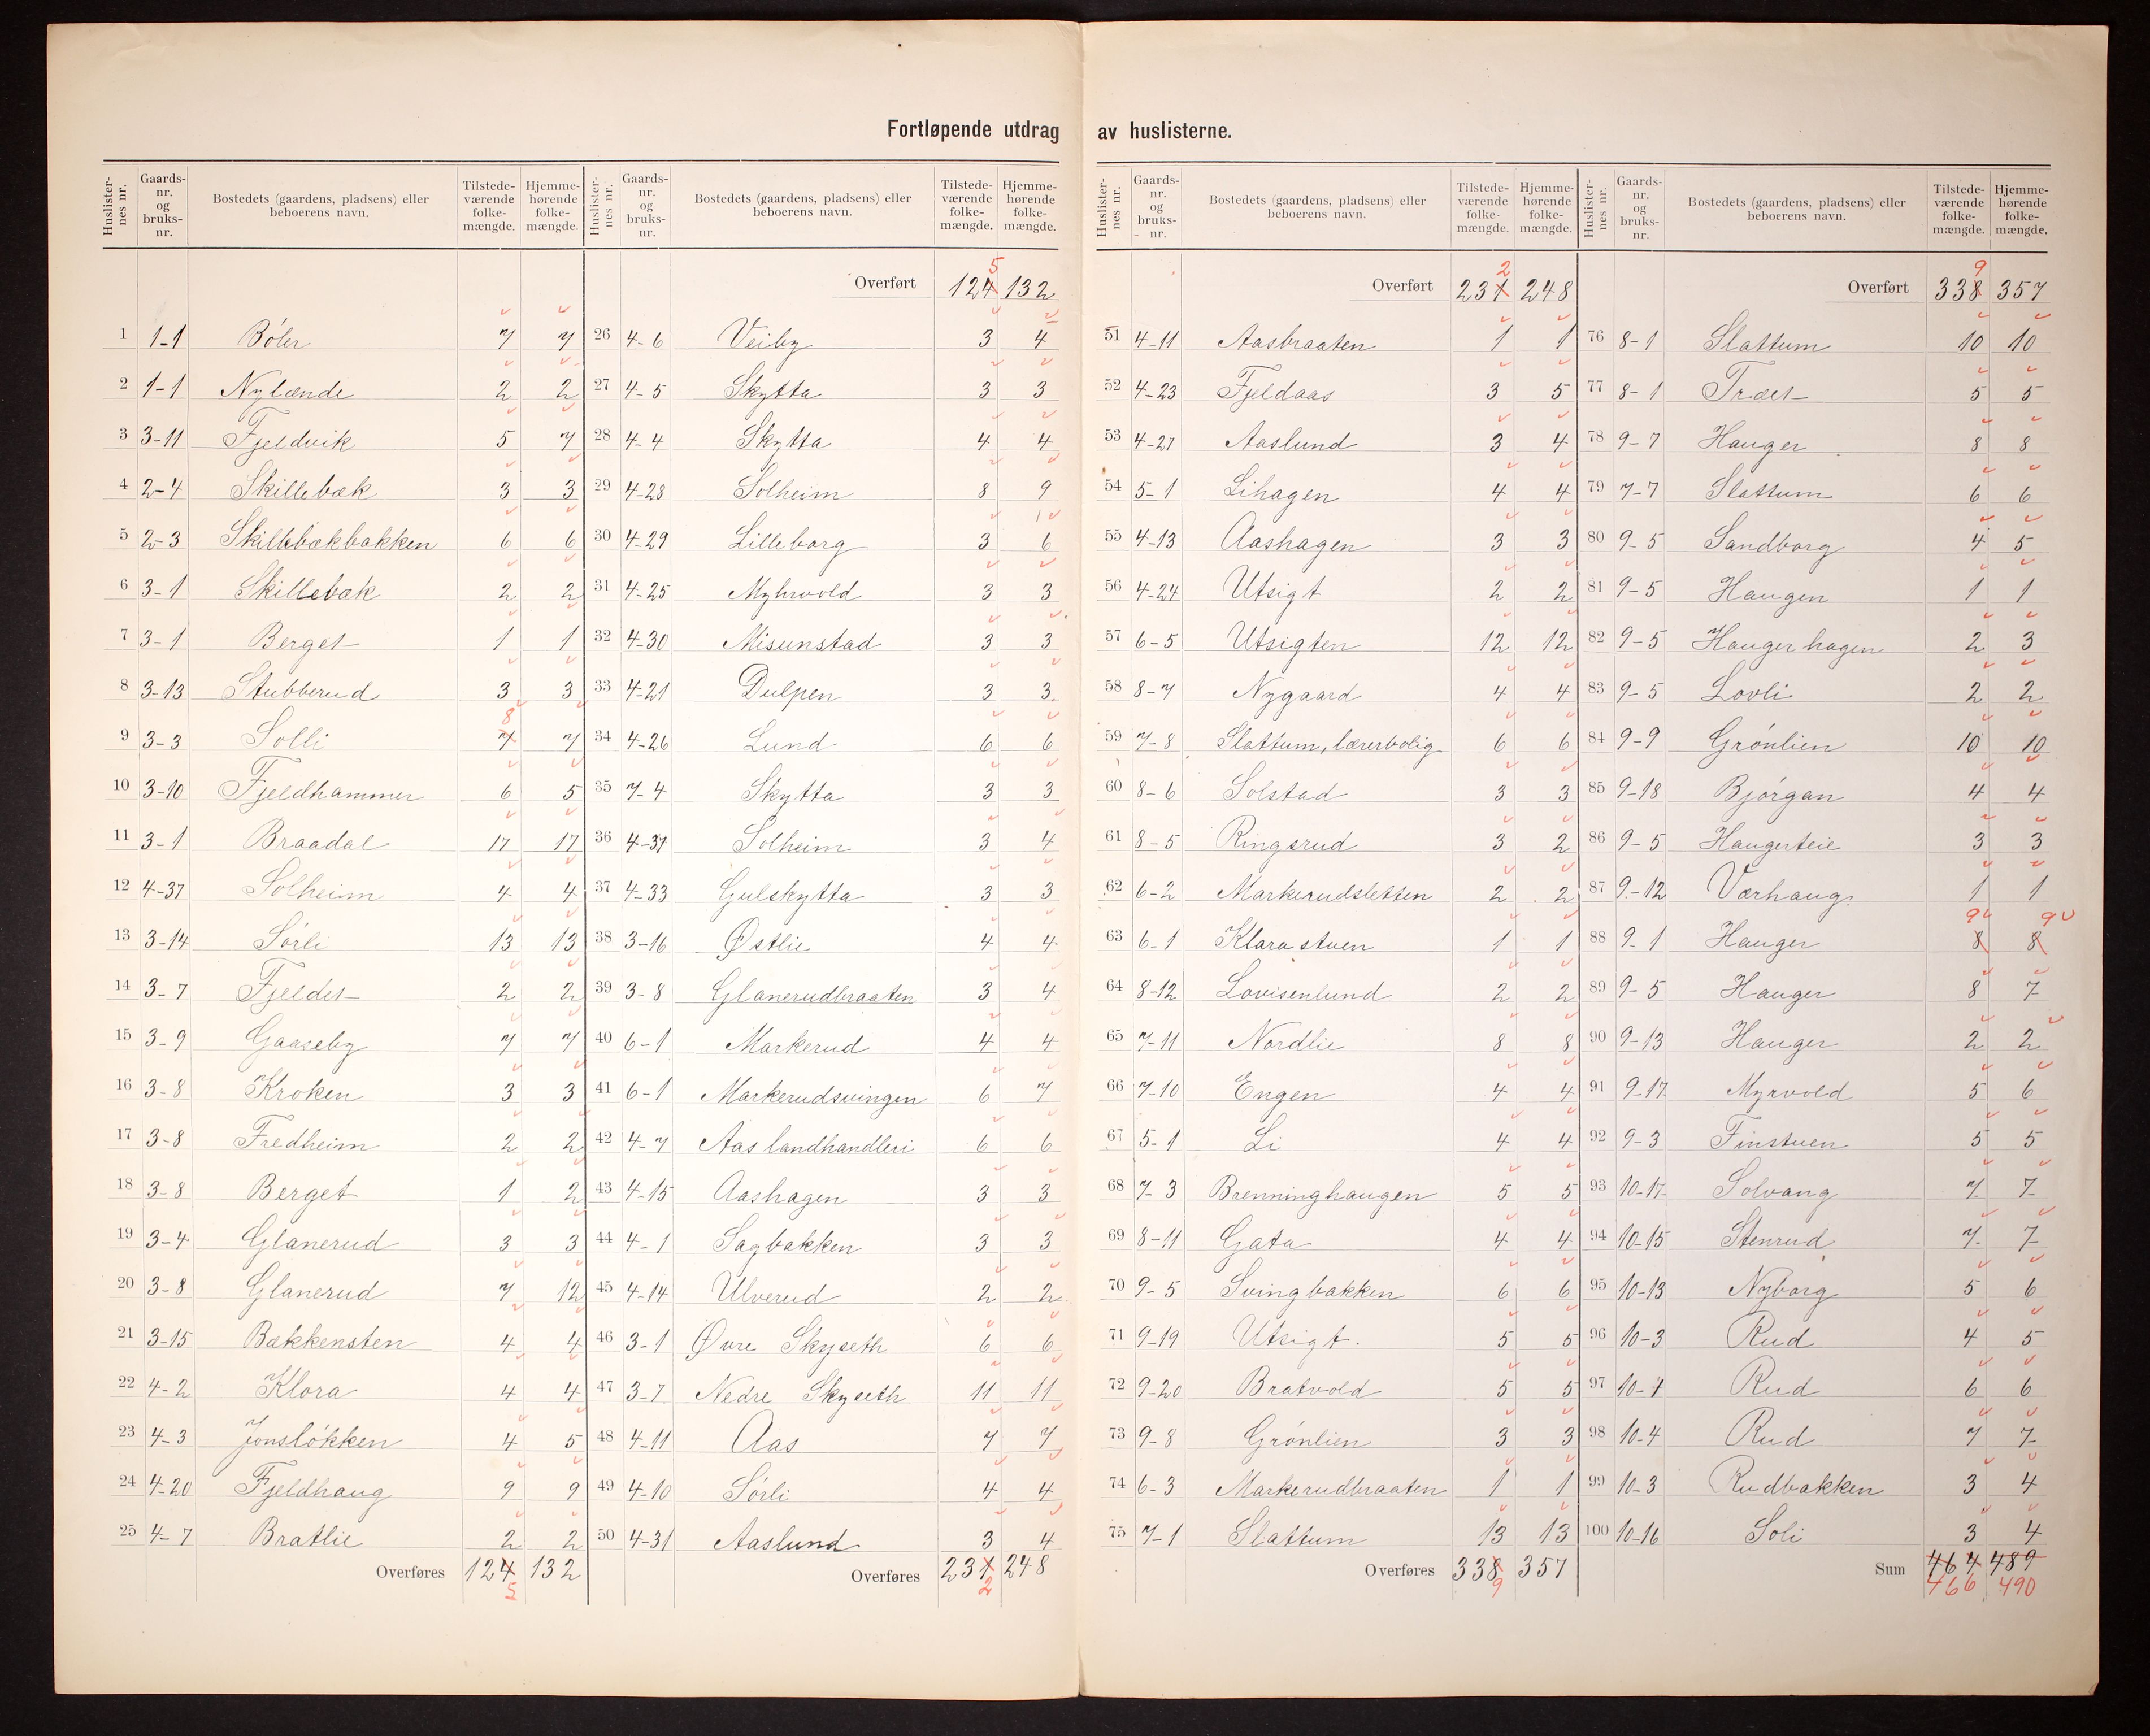 Fortløpende utdrag av huslisterne.
Huslisternes nr. Gaards-nr. og bruks-nr. Bostedets (gaardens, pladsens) eller beboerens navn. Tilstedeværende folkemængde. Hjemmehørende folkemængde.
1 1-1 Bøler 7 7
2 1-1 Nylænde 2 2
3 3-11 Fjeldvik 5 7
4 2-4 Skillebæk 3 3
5 2-3 Skillebækbakken 6 6
6 3-1 Skillebæk 2 2
7 3-1 Berget 1 1
8 3-13 Stubberud 3 3
9 3-3 Solli 7 8 7
10 3-10 Fjeldhammer 6 5
11 3-1 Braadal 17 17
12 4-37 Solheim 4 4
13 3-14 Sørli 13 13
14 3-7 Fjeldet 2 2
15 3-9 Gaaseby 7 7
16 3-8 Kroken 3 3
17 3-8 Fredheim 2 2
18 3-8 Berget 1 2
19 3-4 Glanerud 3 3
20 3-8 Glanerud 7 12
21 3-15 Bækkensten 4 4
22 4-2 Klora 4 4
23 4-3 Jonsløkken 4 5
24 4-20 Fjeldhaug 9 9
25 4-7 Bratlie 2 2
Overføres 124 5 132
Huslisternes nr. Gaards-nr. og bruks-nr. Bostedets (gaardens, pladsens) eller beboerens navn. Tilstedeværende folkemængde. Hjemmehørende folkemængde.
Overført 124 5 132
26 4-6 Veiby 3 4
27 4-5 Skytta 3 3
28 4-4 Skytta 4 4
29 4-28 Solheim 8 9
30 4-29 Lilleborg 3 6
31 4-25 Myhrvold 3 3
32 4-30 Misunstad 3 3
33 4-21 Dulpen 3 3
34 4-26 Lund 6 6
35 7-4 Skytta 3 3
36 4-37 Solheim 3 4
37 4-33 Gulskytta 3 3
38 3-16 Østlie 4 4
39 3-8 Glanerudbraaten 3 4
40 6-1 Markerud 4 4
41 6-1 Markerudsvingen 6 7
42 4-7 Aas landhandleri 6 6
43 4-15 Aashagen 3 3
44 4-1 Sagbakken 3 3
45 4-14 Ulverud 2 2
46 3-1 Øvre Skyseth 6 6
47 3-7 Nedre Skyseth 11 11
48 4-11 Aas 7 7
49 4-10 Sørli 4 4
50 4-31 Aaslund 3 4
Overføres 231 2 248
Huslisternes nr. Gaards-nr. og bruks-nr. Bostedets (gaardens, pladsens) eller beboerens navn. Tilstedeværende folkemængde. Hjemmehørende folkemængde.
Overført 231 2 248
51 4-11 Aasbraaten 1 1
52 4-23 Fjeldaas 3 5
53 4-27 Aaslund 3 4
54 5-1 Lihagen 4 4
55 4-13 Aashagen 3 3
56 4-24 Utsigt 2 2
57 6-5 Utsigten 12 12
58 8-7 Nygaard 4 4
59 7-8 Slattum, lærerbolig 6 6
60 8-6 Solstad 3 3
61 8-5 Ringsrud 3 2
62 6-2 Markerudsletten 2 2
63 6-1 Klarastuen 1 1
64 8-12 Lovisenlund 2 2
65 7-11 Nordlie 8 8
66 7-10 Engen 4 4
67 5-1 Li 4 4
68 7-3 Brenninghaugen 5 5
69 8-11 Gata 4 4
70 9-5 Svingbakken 6 6
71 9-19 Utsigt. 5 5
72 9-20 Bratvold 5 5
73 9-8 Grønlien 3 3
74 6-3 Markerudbraaten 1 1
75 7-1 Slattum 13 13
Overføres 338 9 357
Huslisternes nr. Gaards-nr. og bruks-nr. Bostedets (gaardens, pladsens) eller beboerens navn. Tilstedeværende folkemængde. Hjemmehørende folkemængde.
Overført 338 9 357
76 8-1 Slattum 10 10
77 8-1 Træet 5 5
78 9-7 Hauger 8 8
79 7-7 Slattum 6 6
80 9-5 Sandborg 4 5
81 9-5 Haugen 1 1
82 9-5 Hauger hagen 2 3
83 9-5 Lovli 2 2
84 9-9 Grønlien 10 10
85 9-18 Bjørgan 4 4
86 9-5 Haugerteie 3 3
87 9-12 Varhaug 1 1
88 9-1 Hauger 8 9 8 9
89 9-5 Hauger 8 7
90 9-13 Hauger 2 2
91 9-17 Myrvold 5 6
92 9-3 Finstuen 5 5
93 10-17 Solvang 7 7
94 10-15 Stenrud 7 7
95 10-13 Nyborg 5 6
96 10-3 Rud 4 5
97 10-1 Rud 6 6
98 10-4 Rud 7 7
99 10-3 Rudbakken 3 4
100 10-16 Soli 3 4
Sum 464 489
466 490